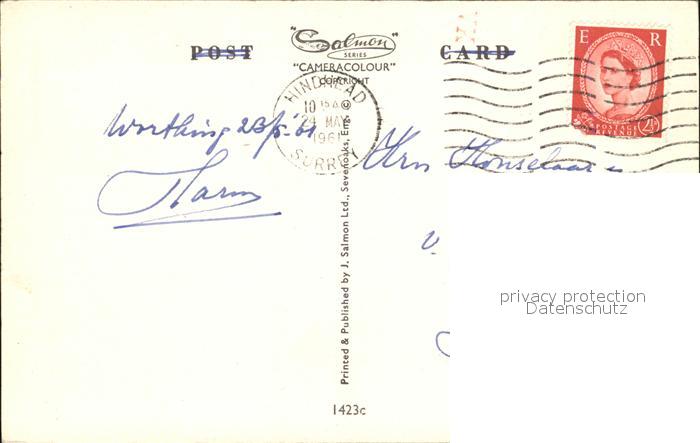 POST CARD
"Salmon"
SERIES
"CAMERACOLOUR"
COPYRIGHT
E R
POSTAGE
REVENUE
2½D
HINDHEAD
24 MAY
1961
SURREY
Worthing 23/5-'61
Printed & Published by J. Salmon Ltd., Sevenoaks, Eng. ©
1423c
privacy protection
Datenschutz